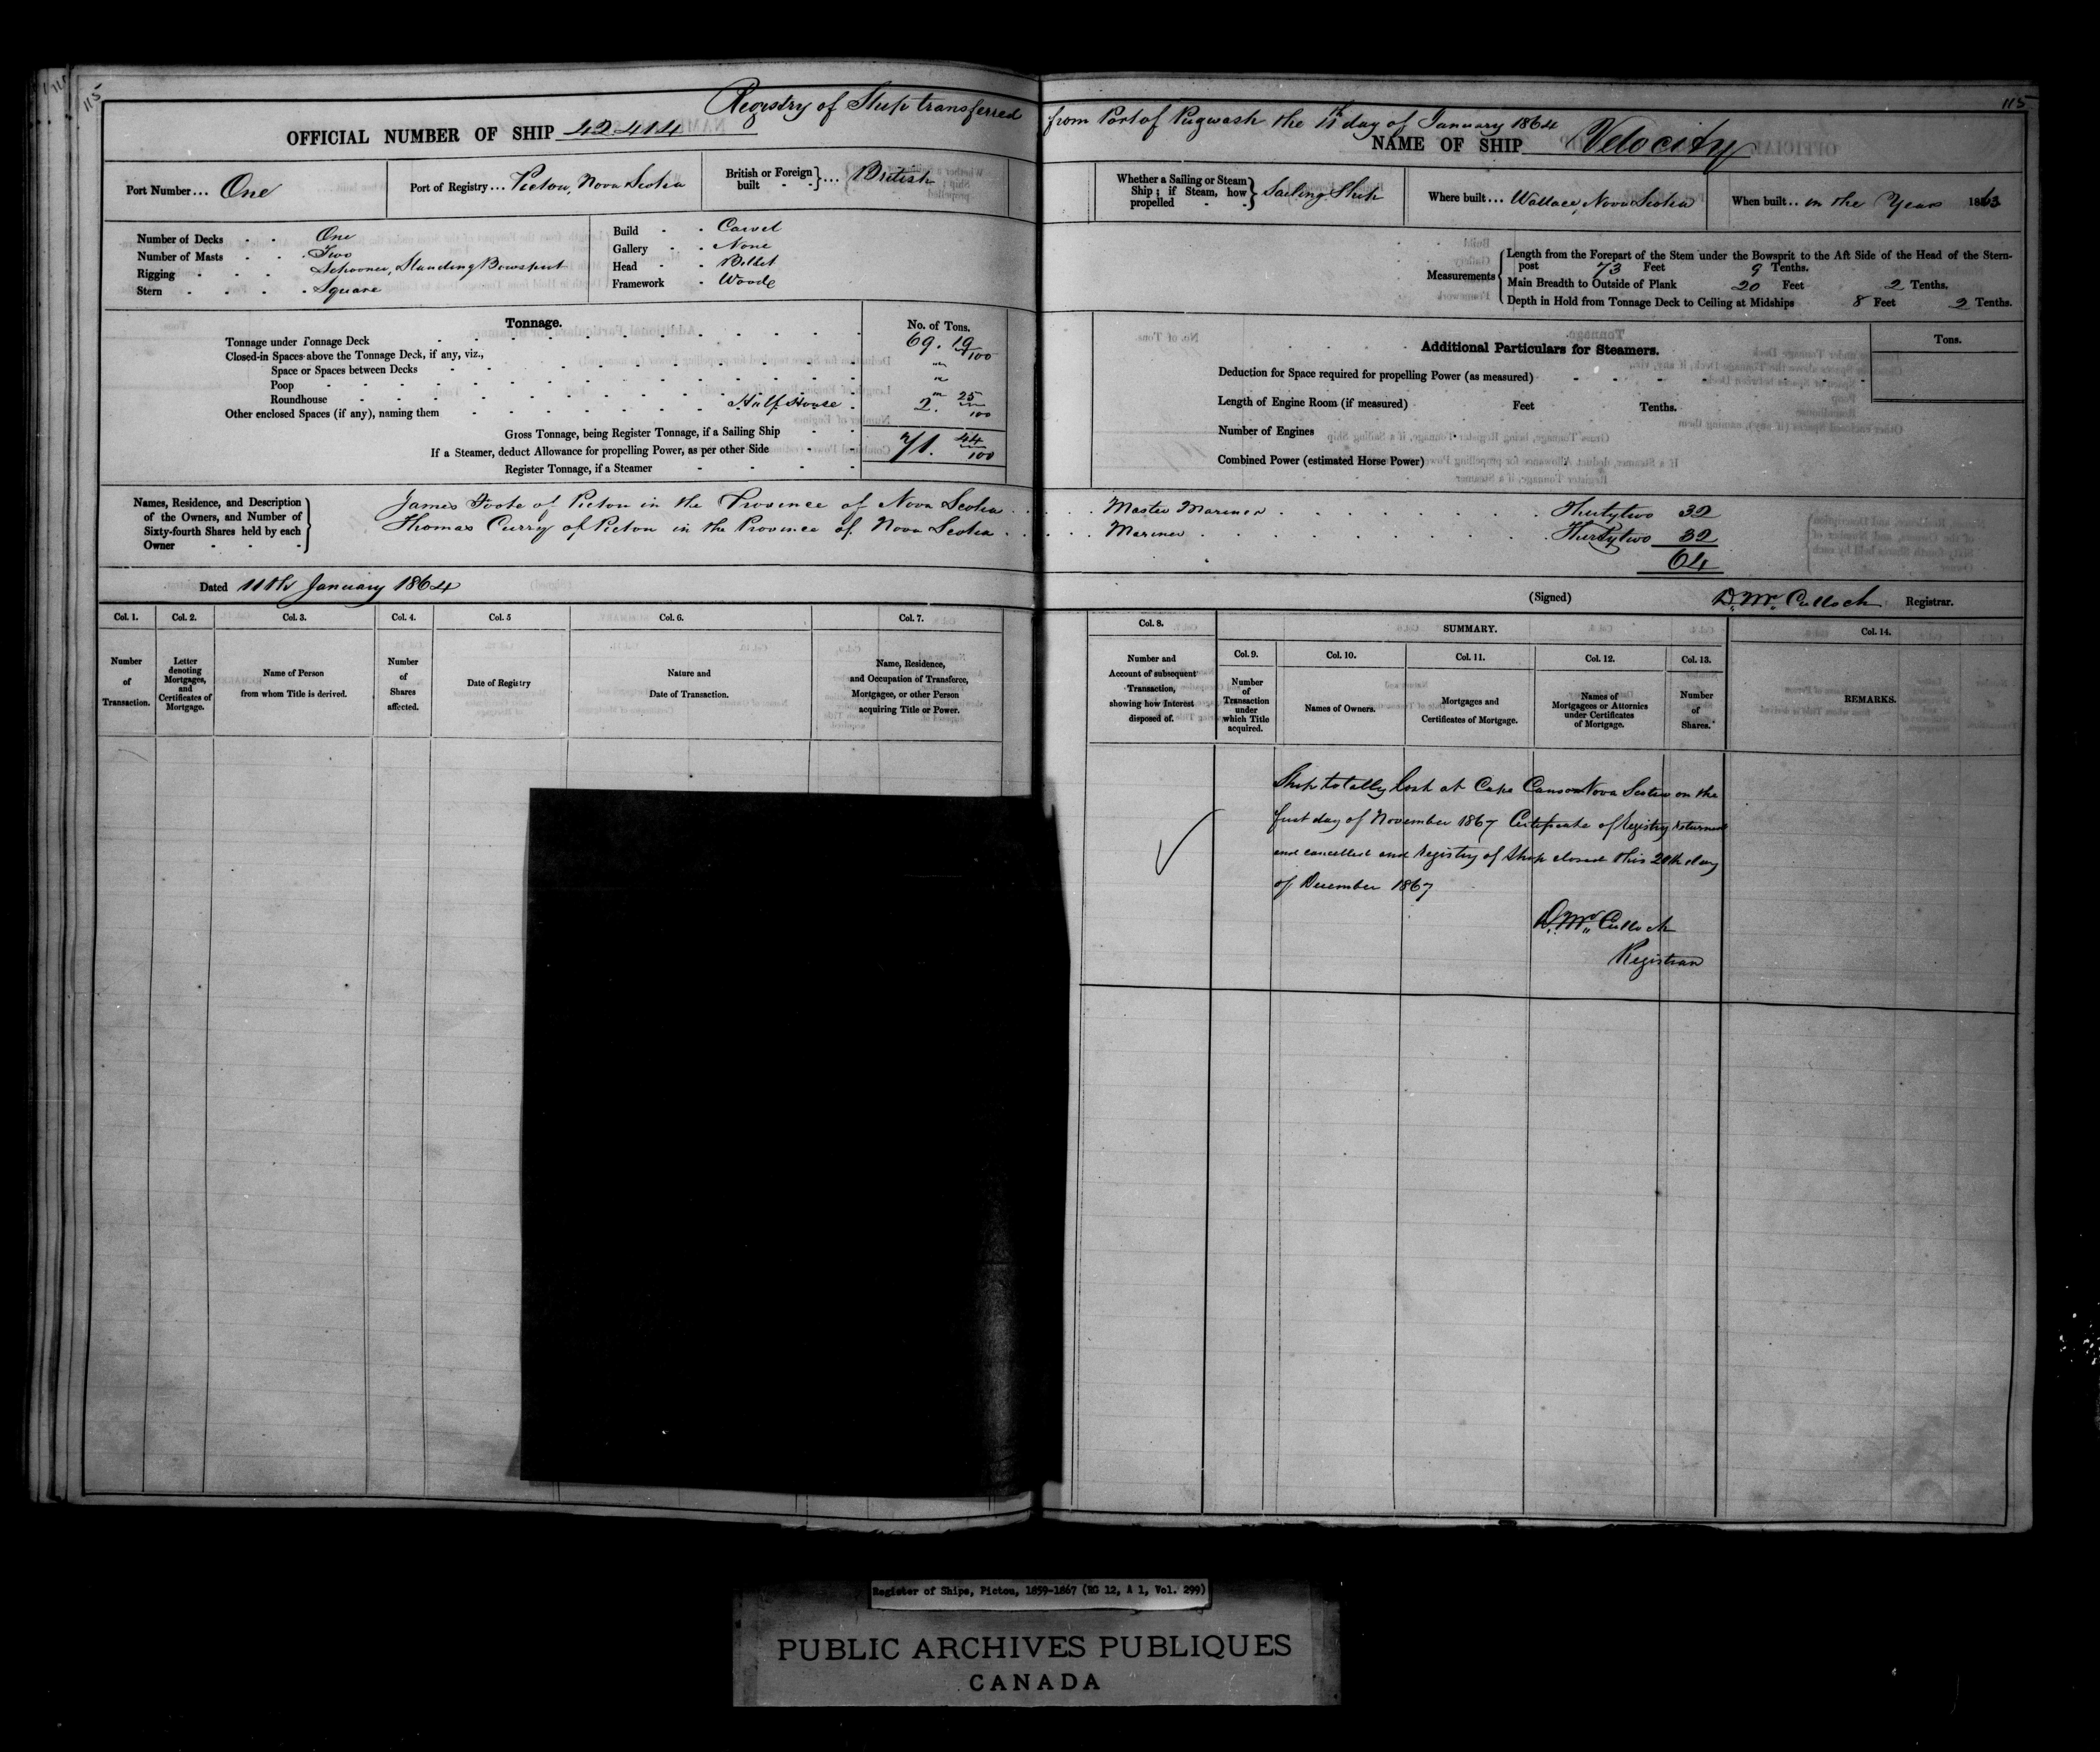 115
115
Registry of Ship transferred from Port of Pugwash the 11th day of January 1864
OFFICIAL NUMBER OF SHIP 42.414
NAME OF SHIP Velocity
Port Number... One
Port of Registry... Pictou, Nova Scotia
British or Foreign built } ... British
Whether a Sailing or Steam Ship; if Steam, how propelled } Sailing Ship
Where built... Wallace, Nova Scotia
When built... in the Year 1863
Number of Decks One
Number of Masts Two
Rigging Schooner, Standing Bowsprit
Stern Square
Build Carvel
Gallery None
Head Billet
Framework Wood
Measurements
Length from the Forepart of the Stem under the Bowsprit to the Aft Side of the Head of the Stern-
post 73 Feet 9 Tenths.
Main Breadth to Outside of Plank 20 Feet 2 Tenths.
Depth in Hold from Tonnage Deck to Ceiling at Midships 8 Feet 2 Tenths.
Tonnage.
No. of Tons.
Tonnage under Tonnage Deck 69. 19/100
Closed-in Spaces above the Tonnage Deck, if any, viz.,
Space or Spaces between Decks "
Poop "
Roundhouse "
Other enclosed Spaces (if any), naming them Half House 2. 25/100
Gross Tonnage, being Register Tonnage, if a Sailing Ship 71. 44/100
If a Steamer, deduct Allowance for propelling Power, as per other Side
Register Tonnage, if a Steamer
Additional Particulars for Steamers.
Tons.
Deduction for Space required for propelling Power (as measured)
Length of Engine Room (if measured) Feet Tenths.
Number of Engines
Combined Power (estimated Horse Power)
Names, Residence, and Description
of the Owners, and Number of
Sixty-fourth Shares held by each
Owner
James Foote of Pictou in the Province of Nova Scotia Master Mariner Thirtytwo 32
Thomas Curry of Pictou in the Province of Nova Scotia Mariner Thirtytwo 32
64
Dated 11th January 1864
(Signed) D. McCulloch Registrar.
Col. 1.
Number of Transaction.
Col. 2.
Letter denoting Mortgages, and Certificates of Mortgage.
Col. 3.
Name of Person
from whom Title is derived.
Col. 4.
Number of Shares affected.
Col. 5
Date of Registry
Col. 6.
Nature and
Date of Transaction.
Col. 7.
Name, Residence,
and Occupation of Transferee,
Mortgagee, or other Person
acquiring Title or Power.
Col. 8.
Number and
Account of subsequent
Transaction,
showing how Interest
disposed of.
SUMMARY.
Col. 9.
Number of Transaction under which Title acquired.
Col. 10.
Names of Owners.
Col. 11.
Mortgages and
Certificates of Mortgage.
Col. 12.
Names of
Mortgagees or Attornies
under Certificates
of Mortgage.
Col. 13.
Number of Shares.
Col. 14.
REMARKS.
Ship totally lost at Cape Canso Nova Scotia on the
first day of November 1867 Certificate of Registry returned
and cancelled and registry of Ship closed this day
of December 1867
D. McCulloch
Registrar
Register of Ships, Pictou, 1859-1867 (RG 12, A 1, Vol. 299)
PUBLIC ARCHIVES PUBLIQUES
CANADA